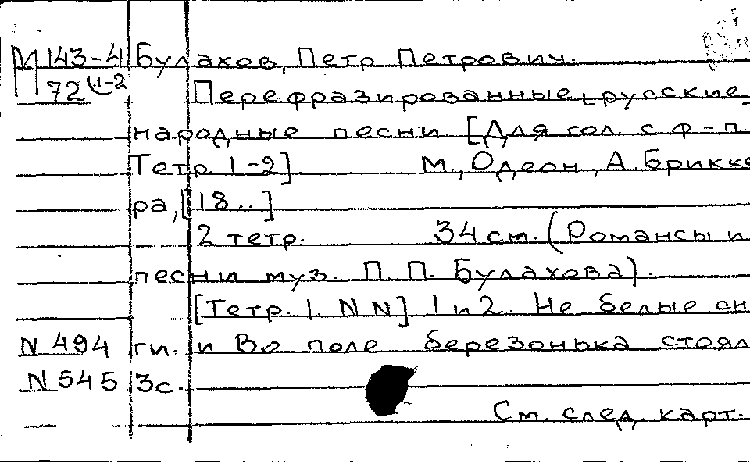 М 143-4 Булахов, Петр Петрович.
72 1-2 Перефразированные русские
народные песни [Для гол. с ф-п.
Тетр. 1-2] М., Одеон, А. Брикке
ра, [18..]
2 тетр. 34 см. (Романсы и
песни муз. П. П. Булахова).
[Тетр. 1. NN] 1 и 2. Не белые сн
N 494 ги. и Во поле березонька стоял
N 545 3с.
См. след. карт.